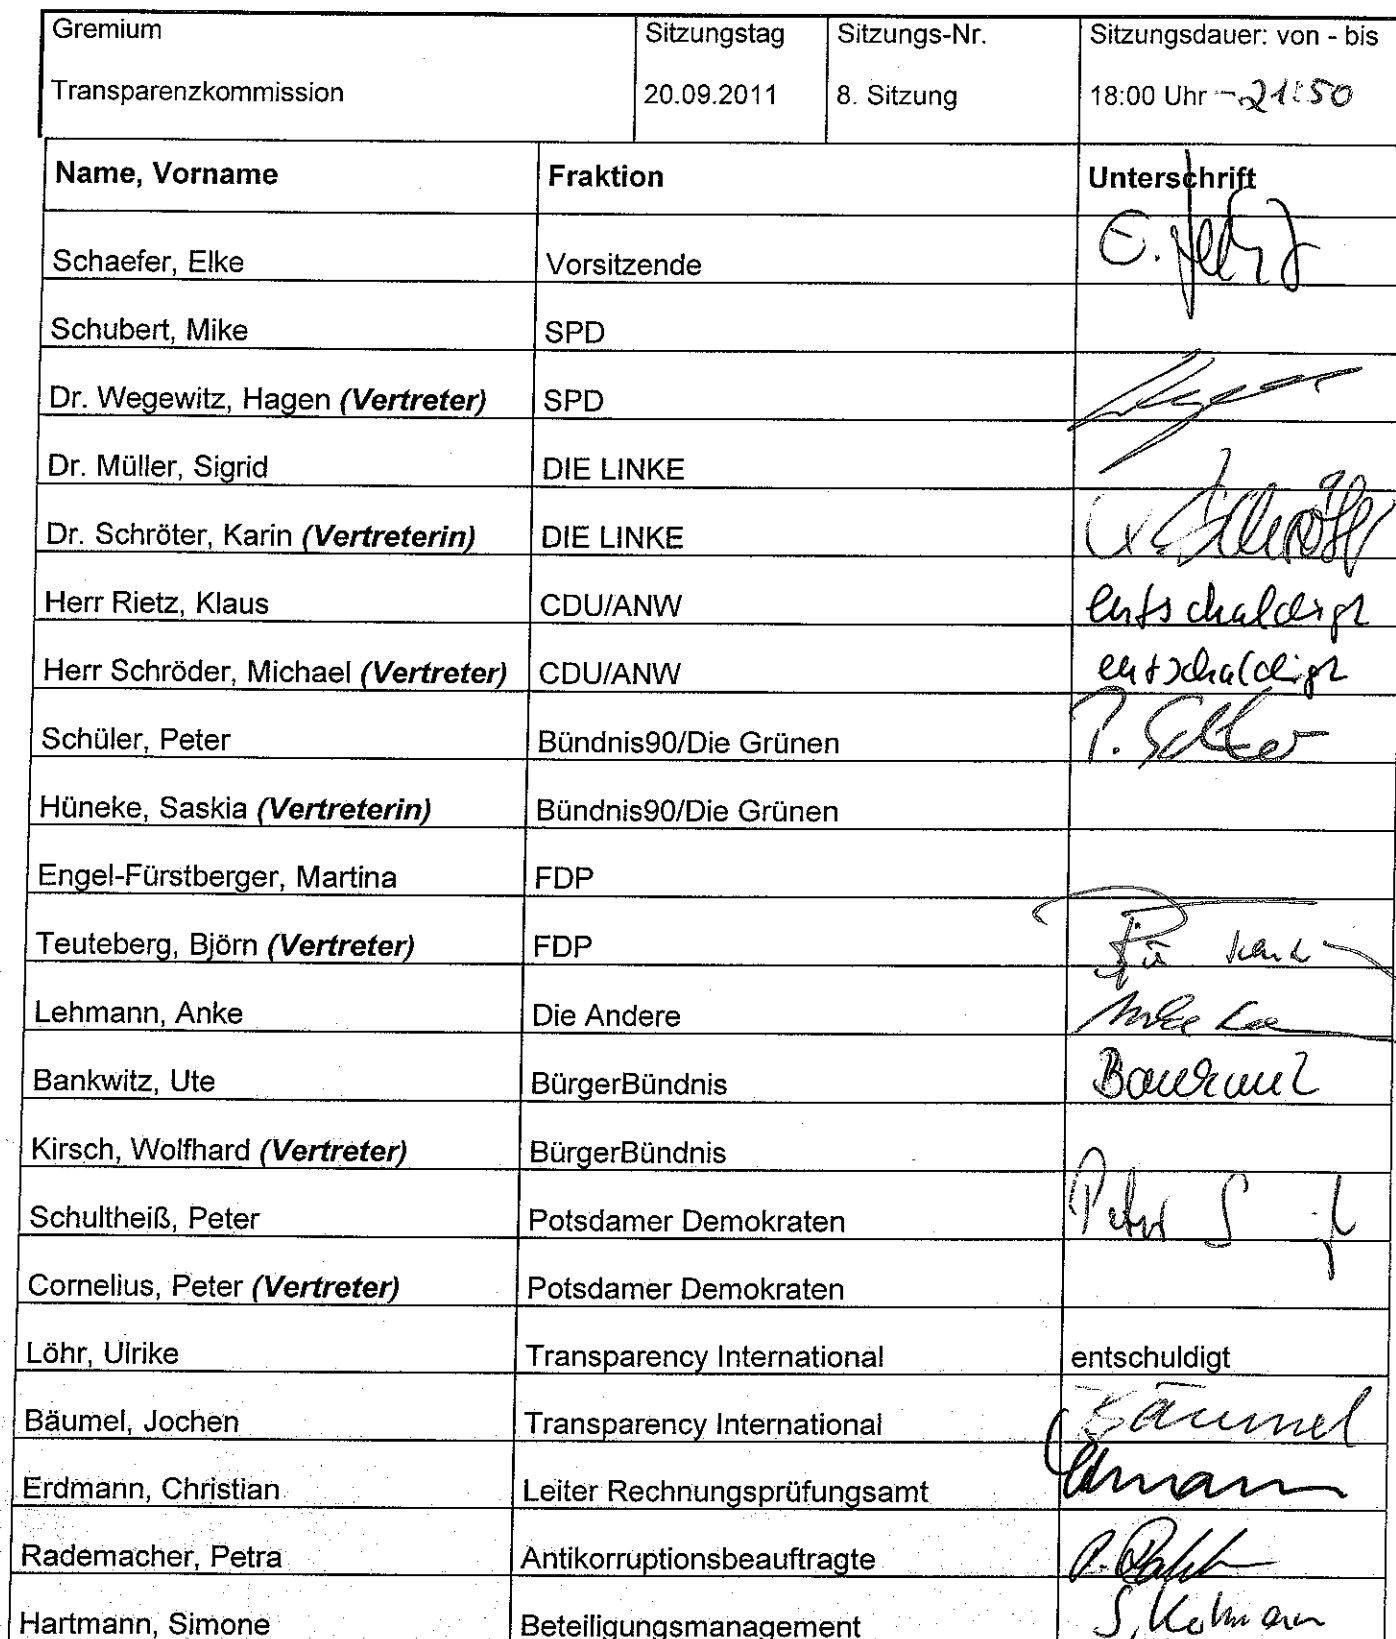 Gremium Sitzungstag Sitzungs-Nr. Sitzungsdauer: von - bis
Transparenzkommission 20.09.2011 8. Sitzung 18:00 Uhr - 21:50
Name, Vorname Fraktion Unterschrift
Schaefer, Elke Vorsitzende E.
Schubert, Mike SPD
Dr. Wegewitz, Hagen (Vertreter) SPD
Dr. Müller, Sigrid DIE LINKE
Dr. Schröter, Karin (Vertreterin) DIE LINKE
Herr Rietz, Klaus CDU/ANW entschuldigt
Herr Schröder, Michael (Vertreter) CDU/ANW entschuldigt
Schüler, Peter Bündnis90/Die Grünen P.
Hüneke, Saskia (Vertreterin) Bündnis90/Die Grünen
Engel-Fürstberger, Martina FDP
Teuteberg, Björn (Vertreter) FDP
Lehmann, Anke Die Andere Anke
Bankwitz, Ute BürgerBündnis
Kirsch, Wolfhard (Vertreter) BürgerBündnis
Schultheiß, Peter Potsdamer Demokraten Peter
Cornelius, Peter (Vertreter) Potsdamer Demokraten
Löhr, Ulrike Transparency International entschuldigt
Bäumel, Jochen Transparency International Bäumel
Erdmann, Christian Leiter Rechnungsprüfungsamt
Rademacher, Petra Antikorruptionsbeauftragte P.
Hartmann, Simone Beteiligungsmanagement S.